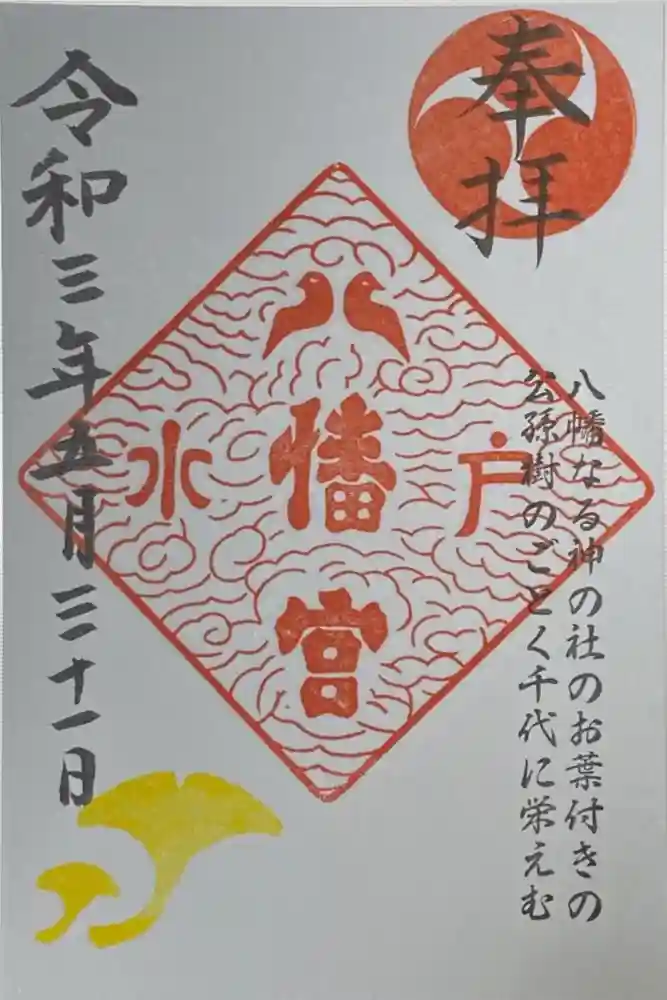 奉拝
八幡なる神の社のお葉付きの
公孫樹のごとく千代に栄えむ
水戸
八幡宮
令和三年五月三十一日